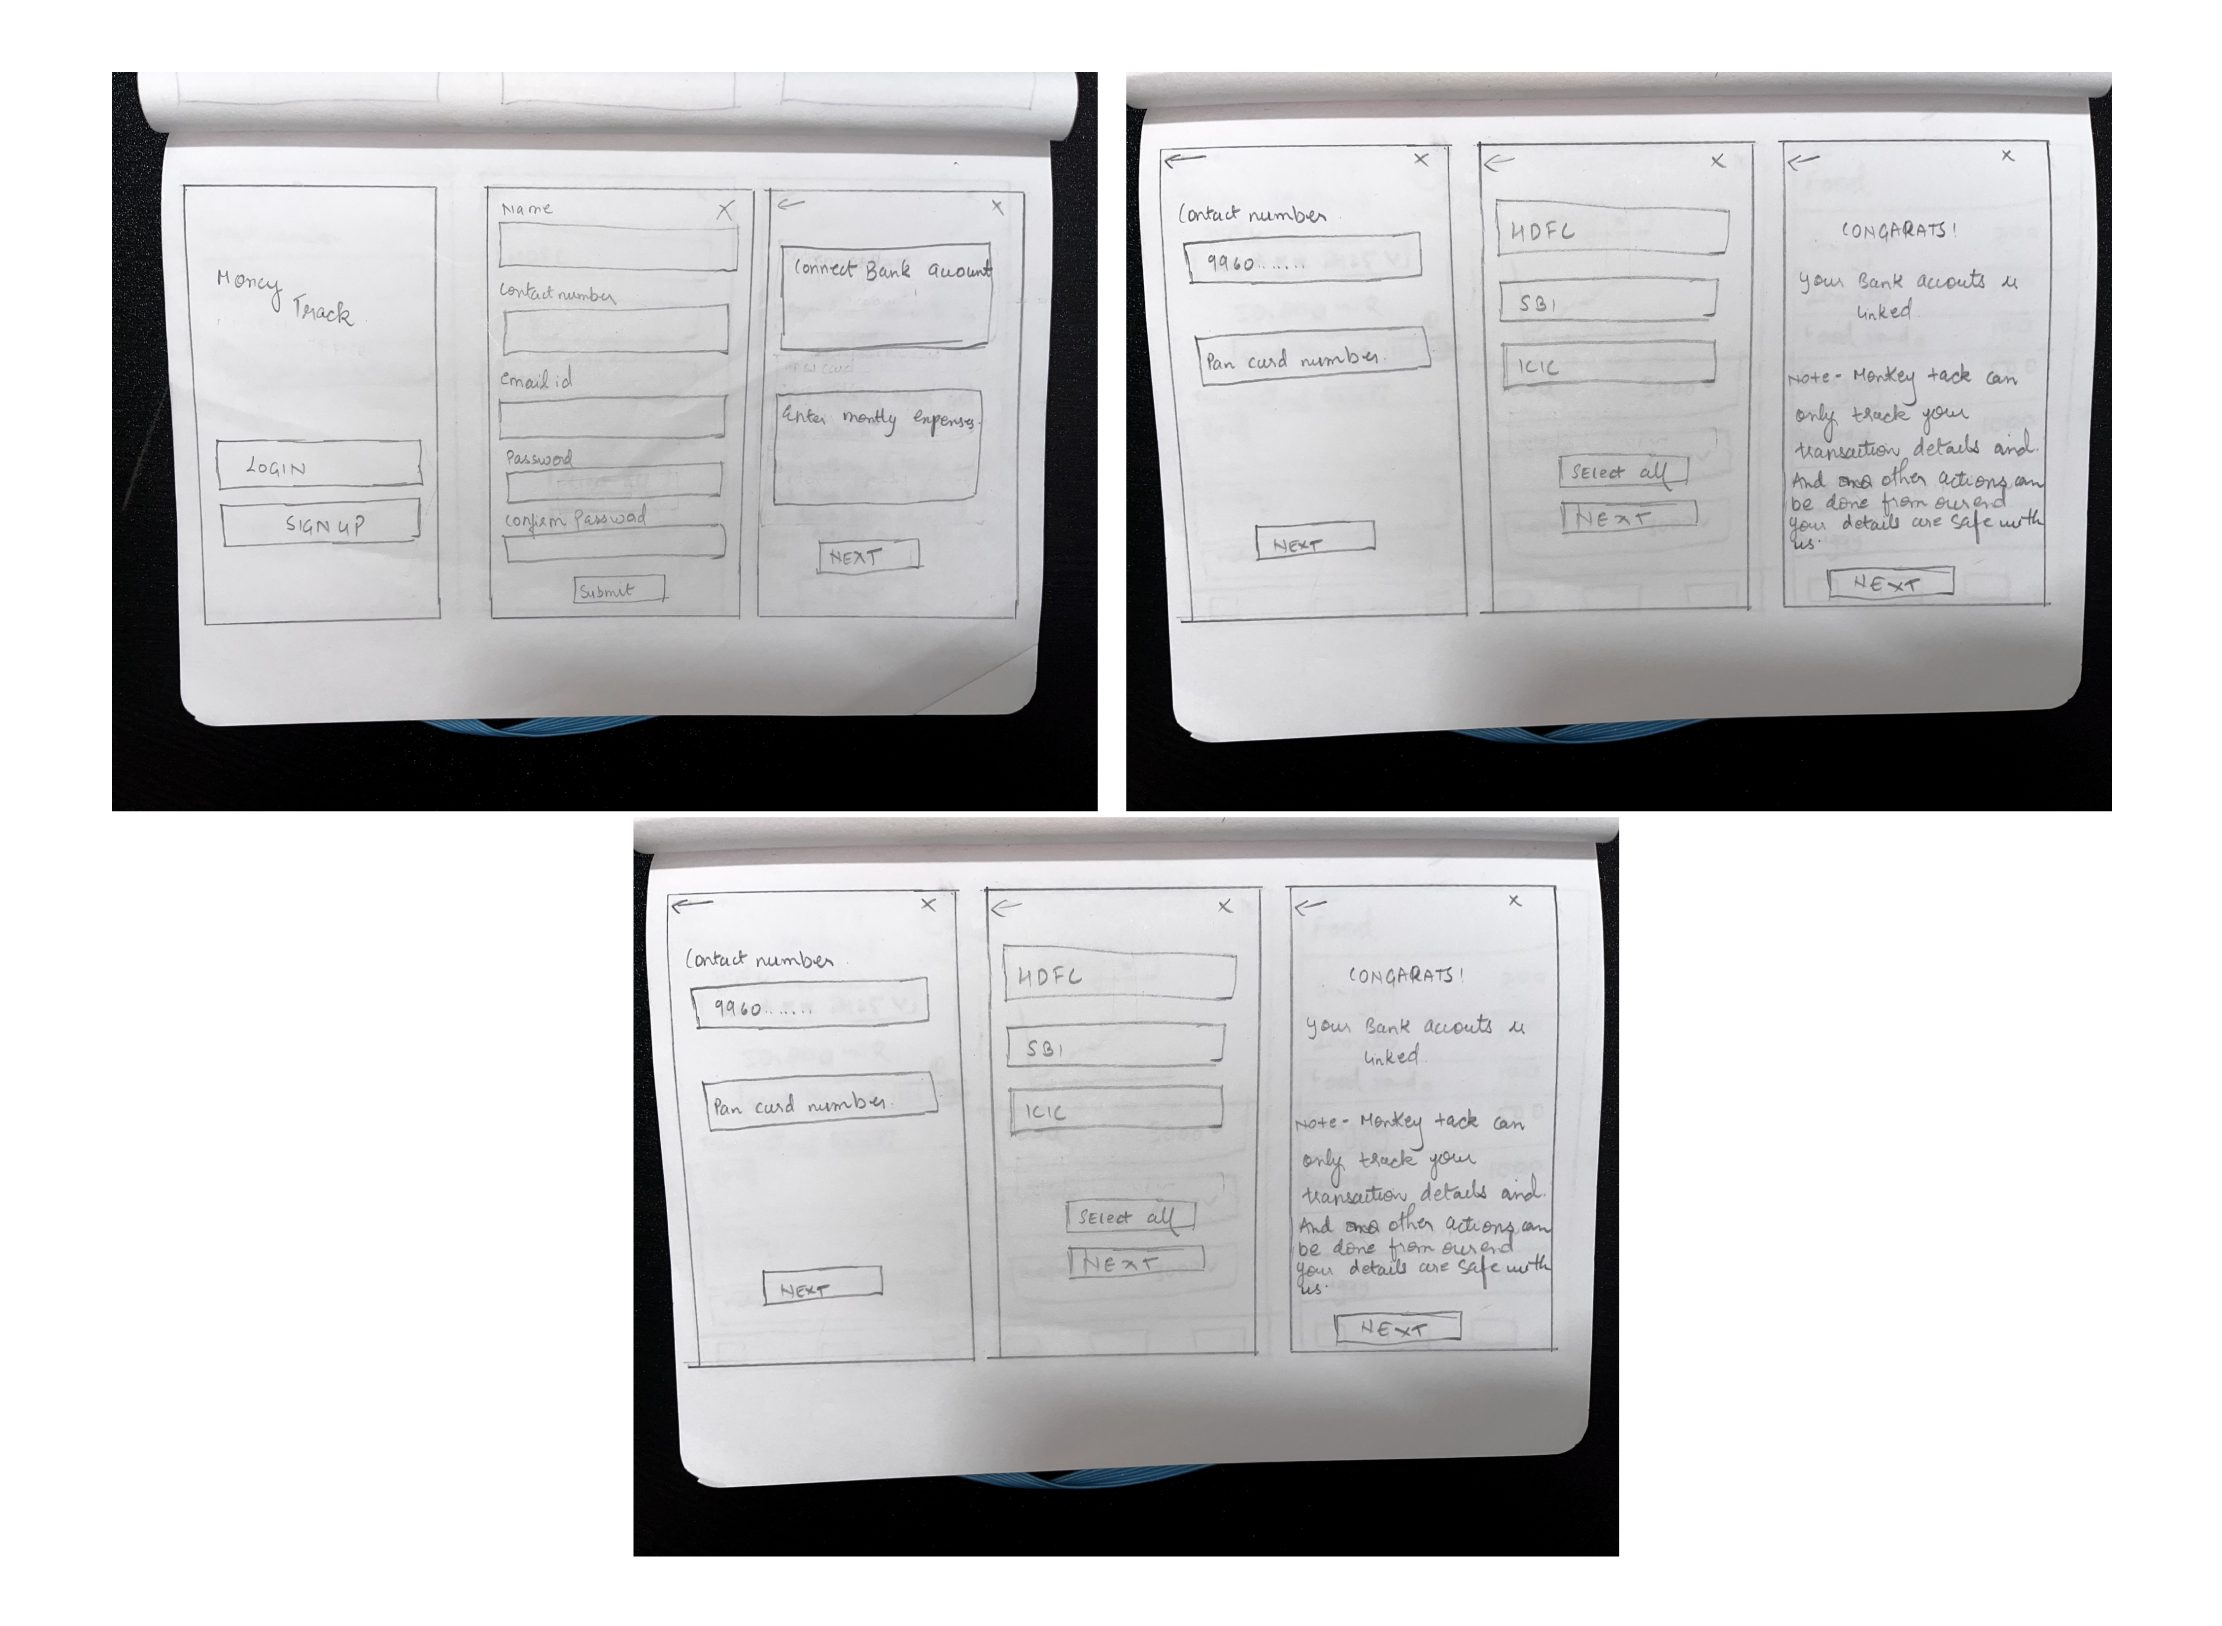 Money
Track
LOGIN
SIGN UP
Name
X
Contact number
Email id
Password
Confirm Passwod
Submit
←
x
Connect Bank Auount
Enter montly expenses.
NEXT
←
x
Contact number
9960.......
Pan card number.
NEXT
←
x
HDFC
SBI
ICIC
Select all
NEXT
←
x
CONGARATS!
Your Bank accouts is
linked
Note- Monkey tack can
only track your
transaction details and.
And other actions can
be done from our end
your details are safe with
us.
NEXT
←
x
Contact number
9960.......
Pan card number.
NEXT
←
x
HDFC
SBI
ICIC
Select all
NEXT
←
x
CONGARATS!
Your Bank accouts is
linked
Note- Monkey tack can
only track your
transaction details and.
And other actions can
be done from our end
your details are safe with
us.
NEXT